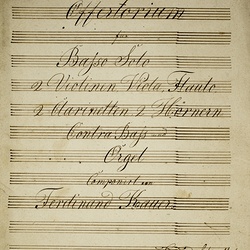 Offertorium
für
Basso Solo
2 Violinen Viola, Flauto
2 Clarinetten 2 Hörnern
Contra Bass und
Orgel
Componiert von
Ferdinand Kauer